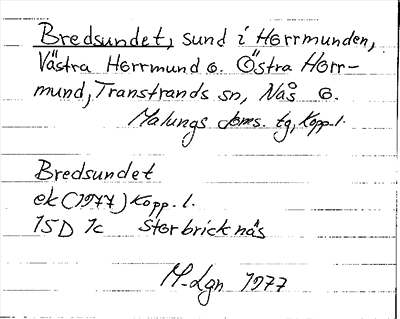 Bredsundet, sund i Horrmunden,
Västra Horrmund o. Östra Horr-
mund, Transtrands sn, Nås o.
Malungs doms. tg, Kopp. l.
Bredsundet
ek (1977) Kopp. l.
15D 1c Storbricknäs
M. Lgn 1977